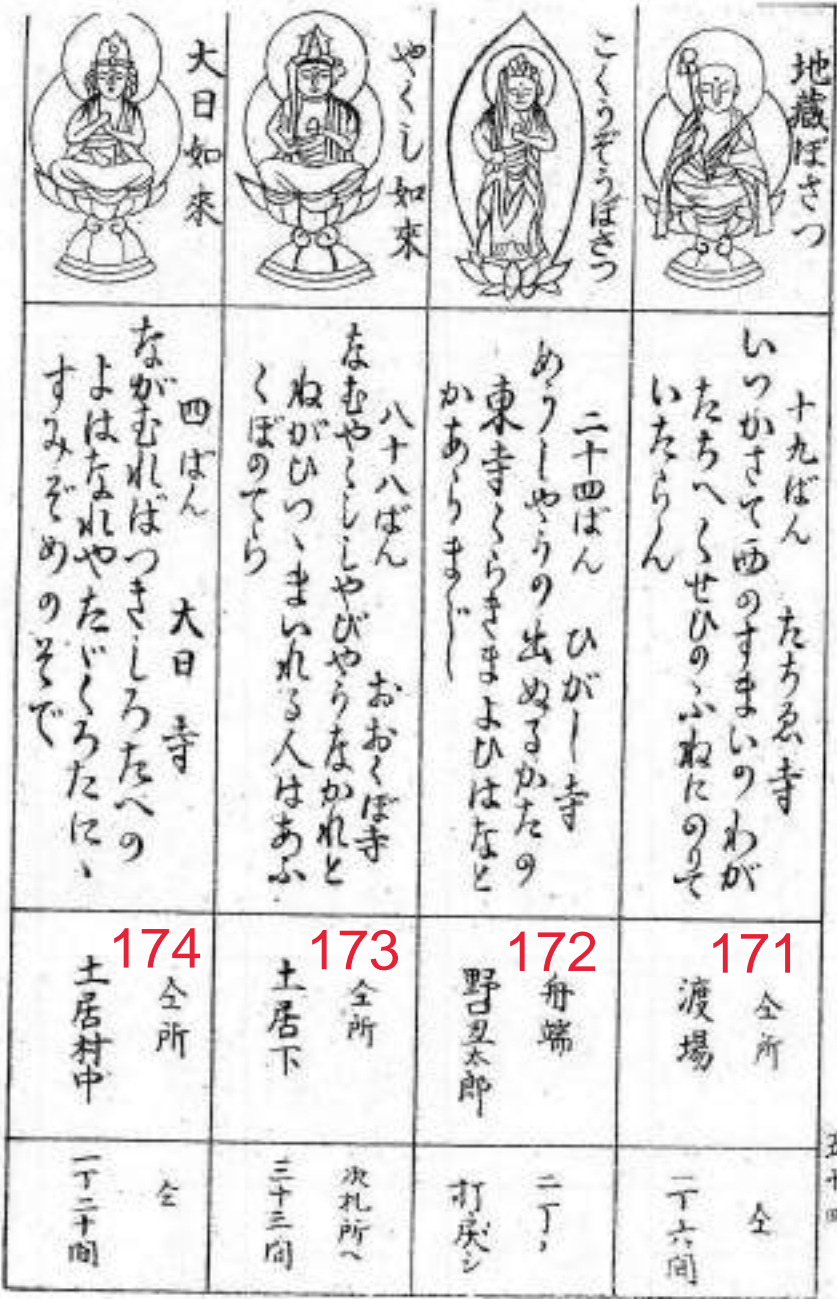 地蔵ぼさつ
十九ばん　たちゑ寺
いつかさて西のすまいのわが
たちへくせひのふねにのりて
いたらん
171
仝所
渡場
仝
一丁六間
こくうぞうぼさつ
二十四ばん　ひがし寺
めうしやうの出ぬるかたの
東寺くらきまよひはなと
かあらまじ
172
舟端
二丁
打戻シ
やくし如來
八十八ばん　おおくぼ寺
なむやくししやびやうなかれと
ねがひつゝまいれる人はあふ
くぼのてら
173
仝所
土居下
次札所へ
三十三間
大日如來
四ばん　大日寺
ながむればつきしろたへの
よはなれやたゞくろたにゝ
すみぞめのそで
174
仝所
土居村中
仝
一丁二十間